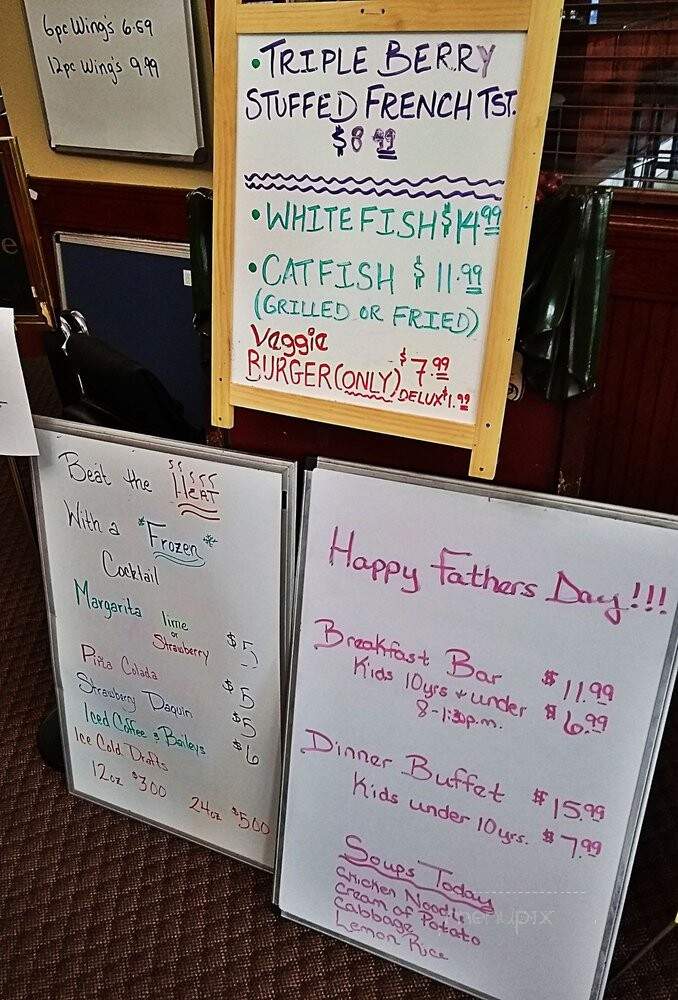 6pc Wing's 6.59
12pc Wing's 9.99
• TRIPLE BERRY
STUFFED FRENCH TST.
$8.99
• WHITEFISH $14.99
• CATFISH $11.99
(GRILLED OR FRIED)
Veggie
BURGER (ONLY) $7.99
DELUX $1.99
Beat the HEAT
With a *Frozen*
Cocktail
Margarita lime
or
Strawberry $5
Piña Colada $5
Strawberry Daquiri $5
Iced Coffee & Baileys $6
Ice Cold Drafts
12oz $3.00 24oz $5.00
Happy Fathers Day!!!
Breakfast Bar $11.99
Kids 10yrs + under $6.99
8-1:30p.m.
Dinner Buffet $15.99
Kids under 10yrs. $7.99
Soups Today
Chicken Noodle
Cream of Potato
Cabbage
Lemon Rice
menupix
e